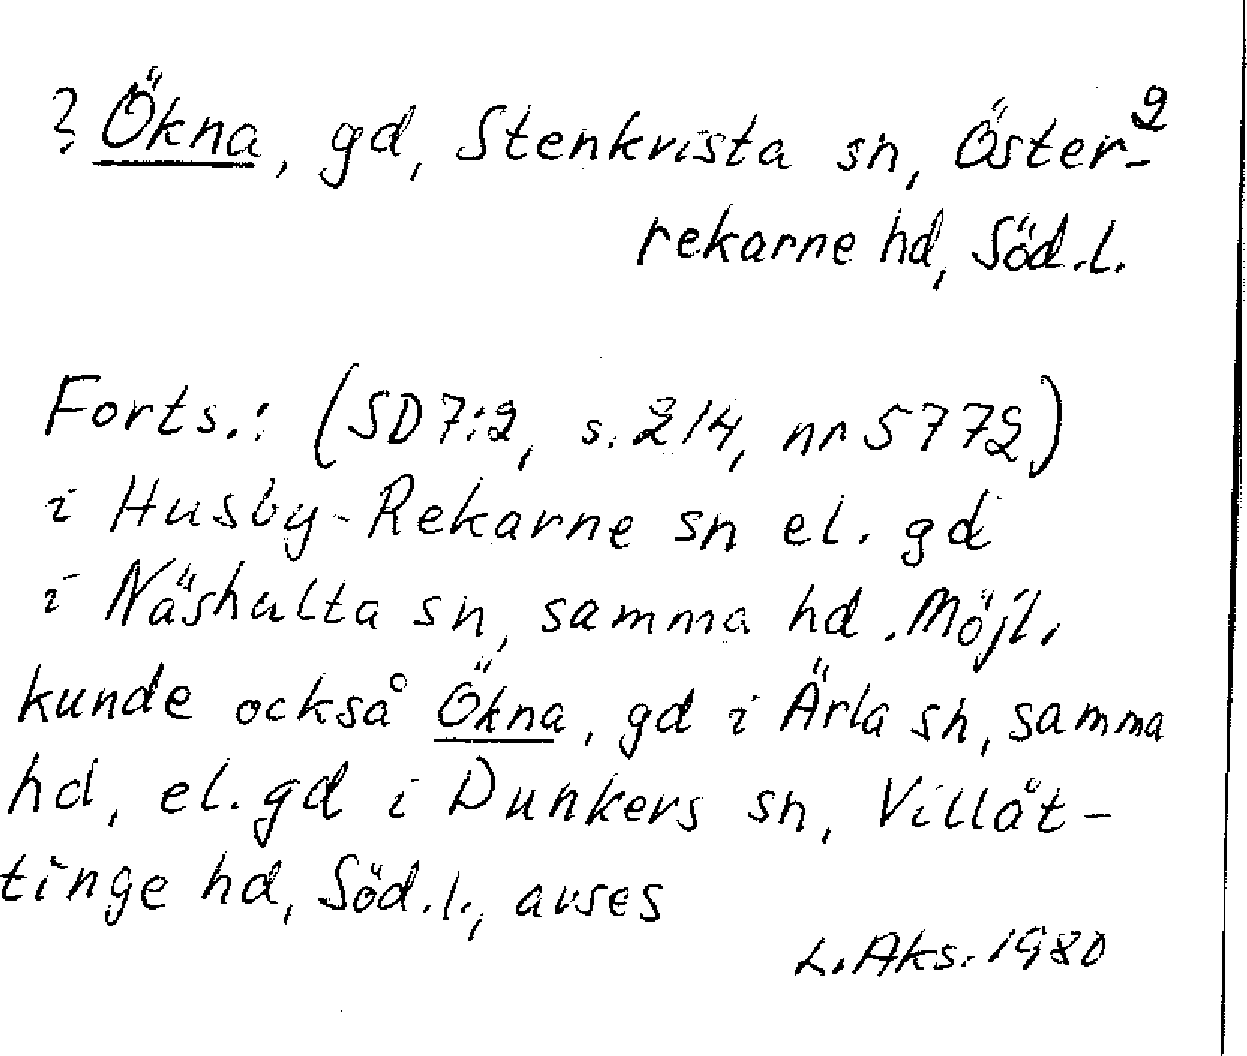 ? Ökna, gd, Stenkvista sn, Öster- 2
rekarne hd, Söd.l.
Forts.: (SD 7:2, s. 214, nr 5772)
i Husby-Rekarne sn el. gd
i Näshulta sn, samma hd. Möjl.
kunde också Ökna, gd i Ärla sn, samma
hd, el. gd i Dunkers sn, Villåt-
tinge hd, Söd.l., avses
L. Aks. 1980